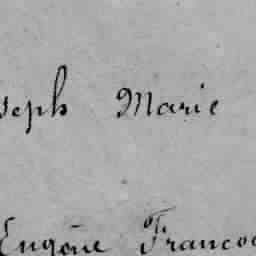 seph Marie
Eugène Francoi